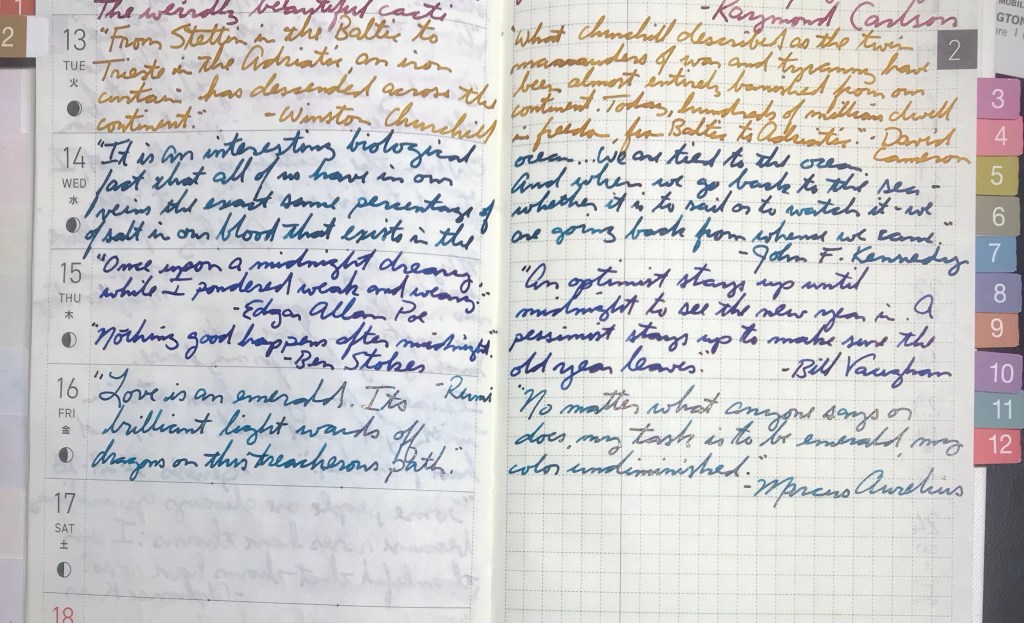 The weirdly beautiful cacti
13
TUE
火
"From Stettin in the Baltic to
Trieste in the Adriatic, an iron
curtain has descended across the
continent." -Winston Churchill
14
WED
水
"It is an interesting biological
fact that all of us have in our
veins the exact same percentage of
of salt in our blood that exists in the
15
THU
木
"Once upon a midnight dreary,
while I pondered weak and weary"
-Edgar Allan Poe
"Nothing good happens after midnight."
-Ben Stokes
16
FRI
金
"Love is an emerald. Its -Rumi
brilliant light wards off
dragons on this treacherous path."
17
SAT
土
18
-Raymond Carlson
"What Churchill described as the twin
marauders of war and tyranny have
been almost entirely banished from our
continent. Today, hundreds of million dwell
in freedom, from Baltic to Adriatic." - David
Cameron
ocean... We are tied to the ocean.
And when we go back to the sea -
whether it is to sail or to watch it - we
are going back from whence we came."
-John F. Kennedy
"An optimist stays up until
midnight to see the new year in. A
pessimist stays up to make sure the
old year leaves." -Bill Vaughan
"No matter what anyone says or
does, my task is to be emerald, my
color undiminished."
-Marcus Aurelius
1
2
2
3
4
5
6
7
8
9
10
11
12